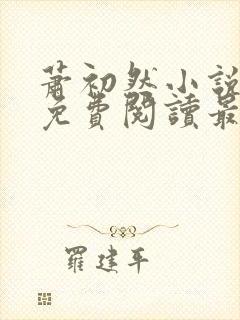 蕭初然小說
免費閱讀最
羅建平